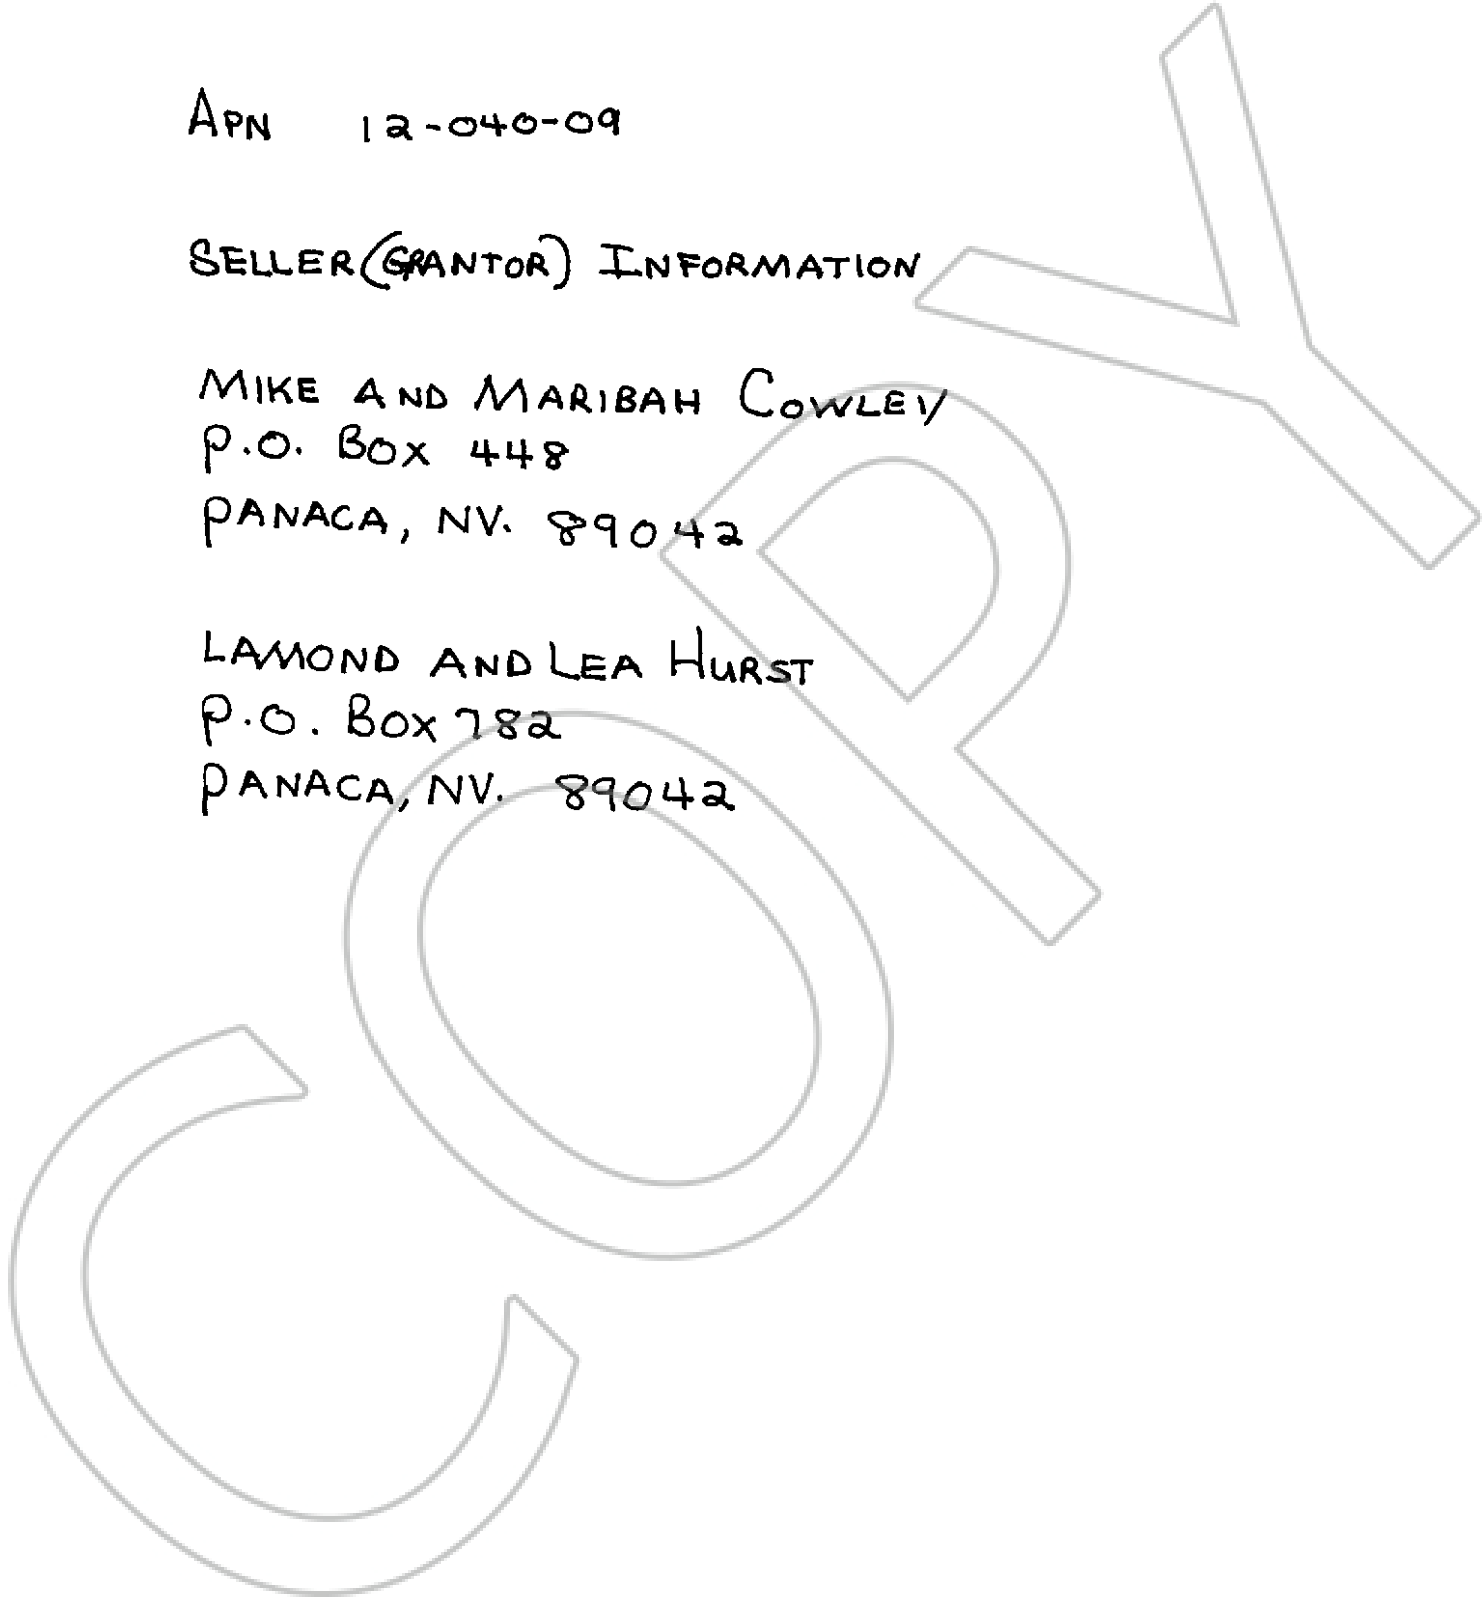 APN 12-040-09
SELLER (GRANTOR) INFORMATION
MIKE AND MARIBAH COWLEY
P.O. BOX 448
PANACA, NV. 89042
LAMOND AND LEA HURST
P.O. BOX 782
PANACA, NV. 89042
COPY